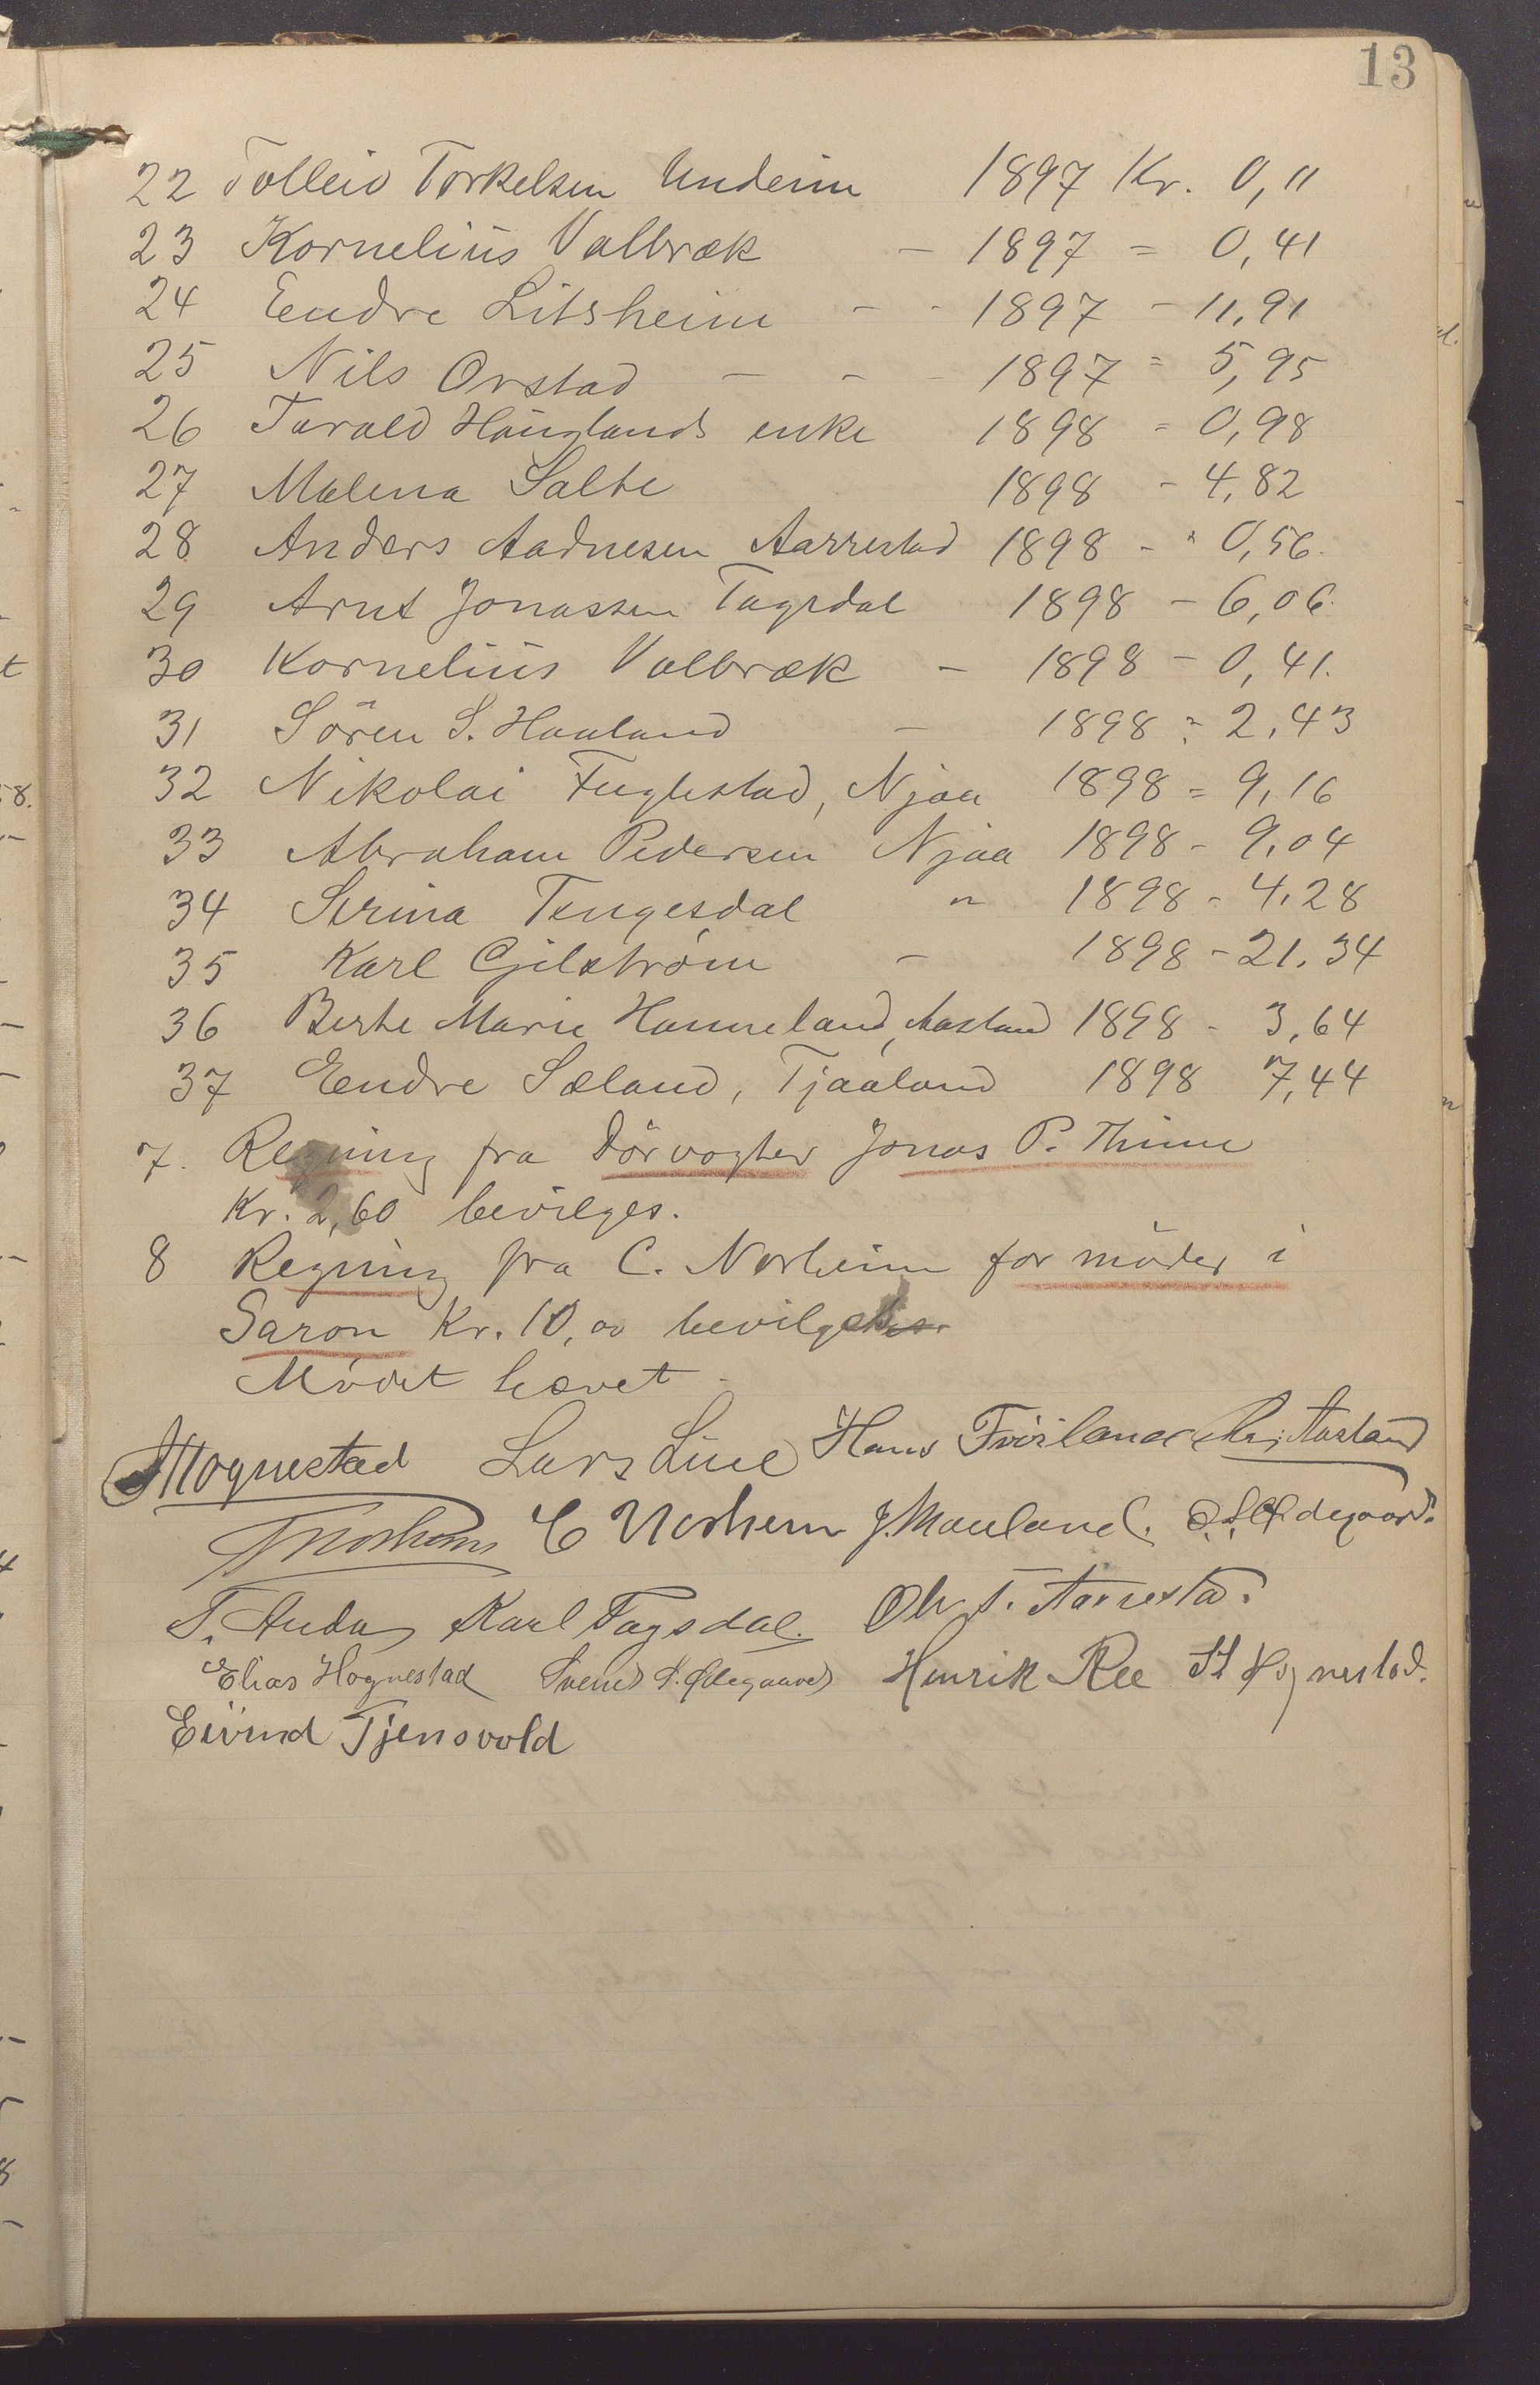 13
22 Tolleiv Torkelsen Underim 1897 Kr. 0,11
23 Kornelius Valbræk - 1897 = 0,41
24 Eendre Litsheim - - 1897 - 11,91
25 Nils Orstad - - - 1897 = 5,95
26 Tarald Hauglands enke 1898 = 0,98
27 Malena Salte 1898 - 4,82
28 Anders Aadnesen Aarrestad 1898 - " 0,56.
29 Arnt Jonassen Tagsdal 1898 - 6,06.
30 Kornelius Valbræk - 1898 - 0,41.
31 Sören S. Haaland - 1898 = 2,43
32 Nikolai Fuglestad, Njaa 1898 = 9,16
33 Abraham Pedersen Njaa 1898 - 9,04
34 Serina Tengesdal " 1898 - 4,28
35 Karl Gilström - 1898 - 21,34
36 Berte Marie Hanneland, Aasland 1898 - 3,64
37 Eendre Sæland, Tjaaland 1898 7,44
7. Regning fra Dörvogter Jonas P. Thime
Kr. 2,60 bevilges.
8 Regning fra C. Norheim for möder i
Saron Kr. 10,00 bevilges.
Mödet hævet.
Hognestad Lars Line Hans Tröiland Aasland
Norheim C Norheim J. Mauland. Ødegaard.
T. Auda Karl Tagsdal. Ole T. Aarrestad.
Elias Hognestad Svend S. Ødegaard Henrik Ree St Hognestad.
Eivind Tjensvold